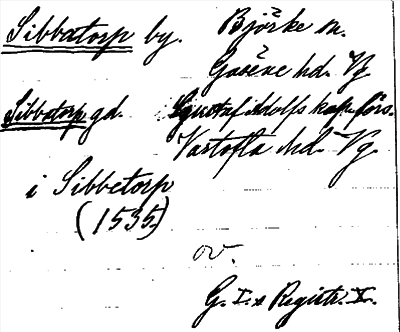 Sibbatorp by. Björke sn.
Gäsene hd. Vg
Sibbatorp gd. Gustaf Adolfs kap. förs.
Vartofta hd. Vg.
i Sibbetorp
(1535)
ov.
G. I:s Registr. X.